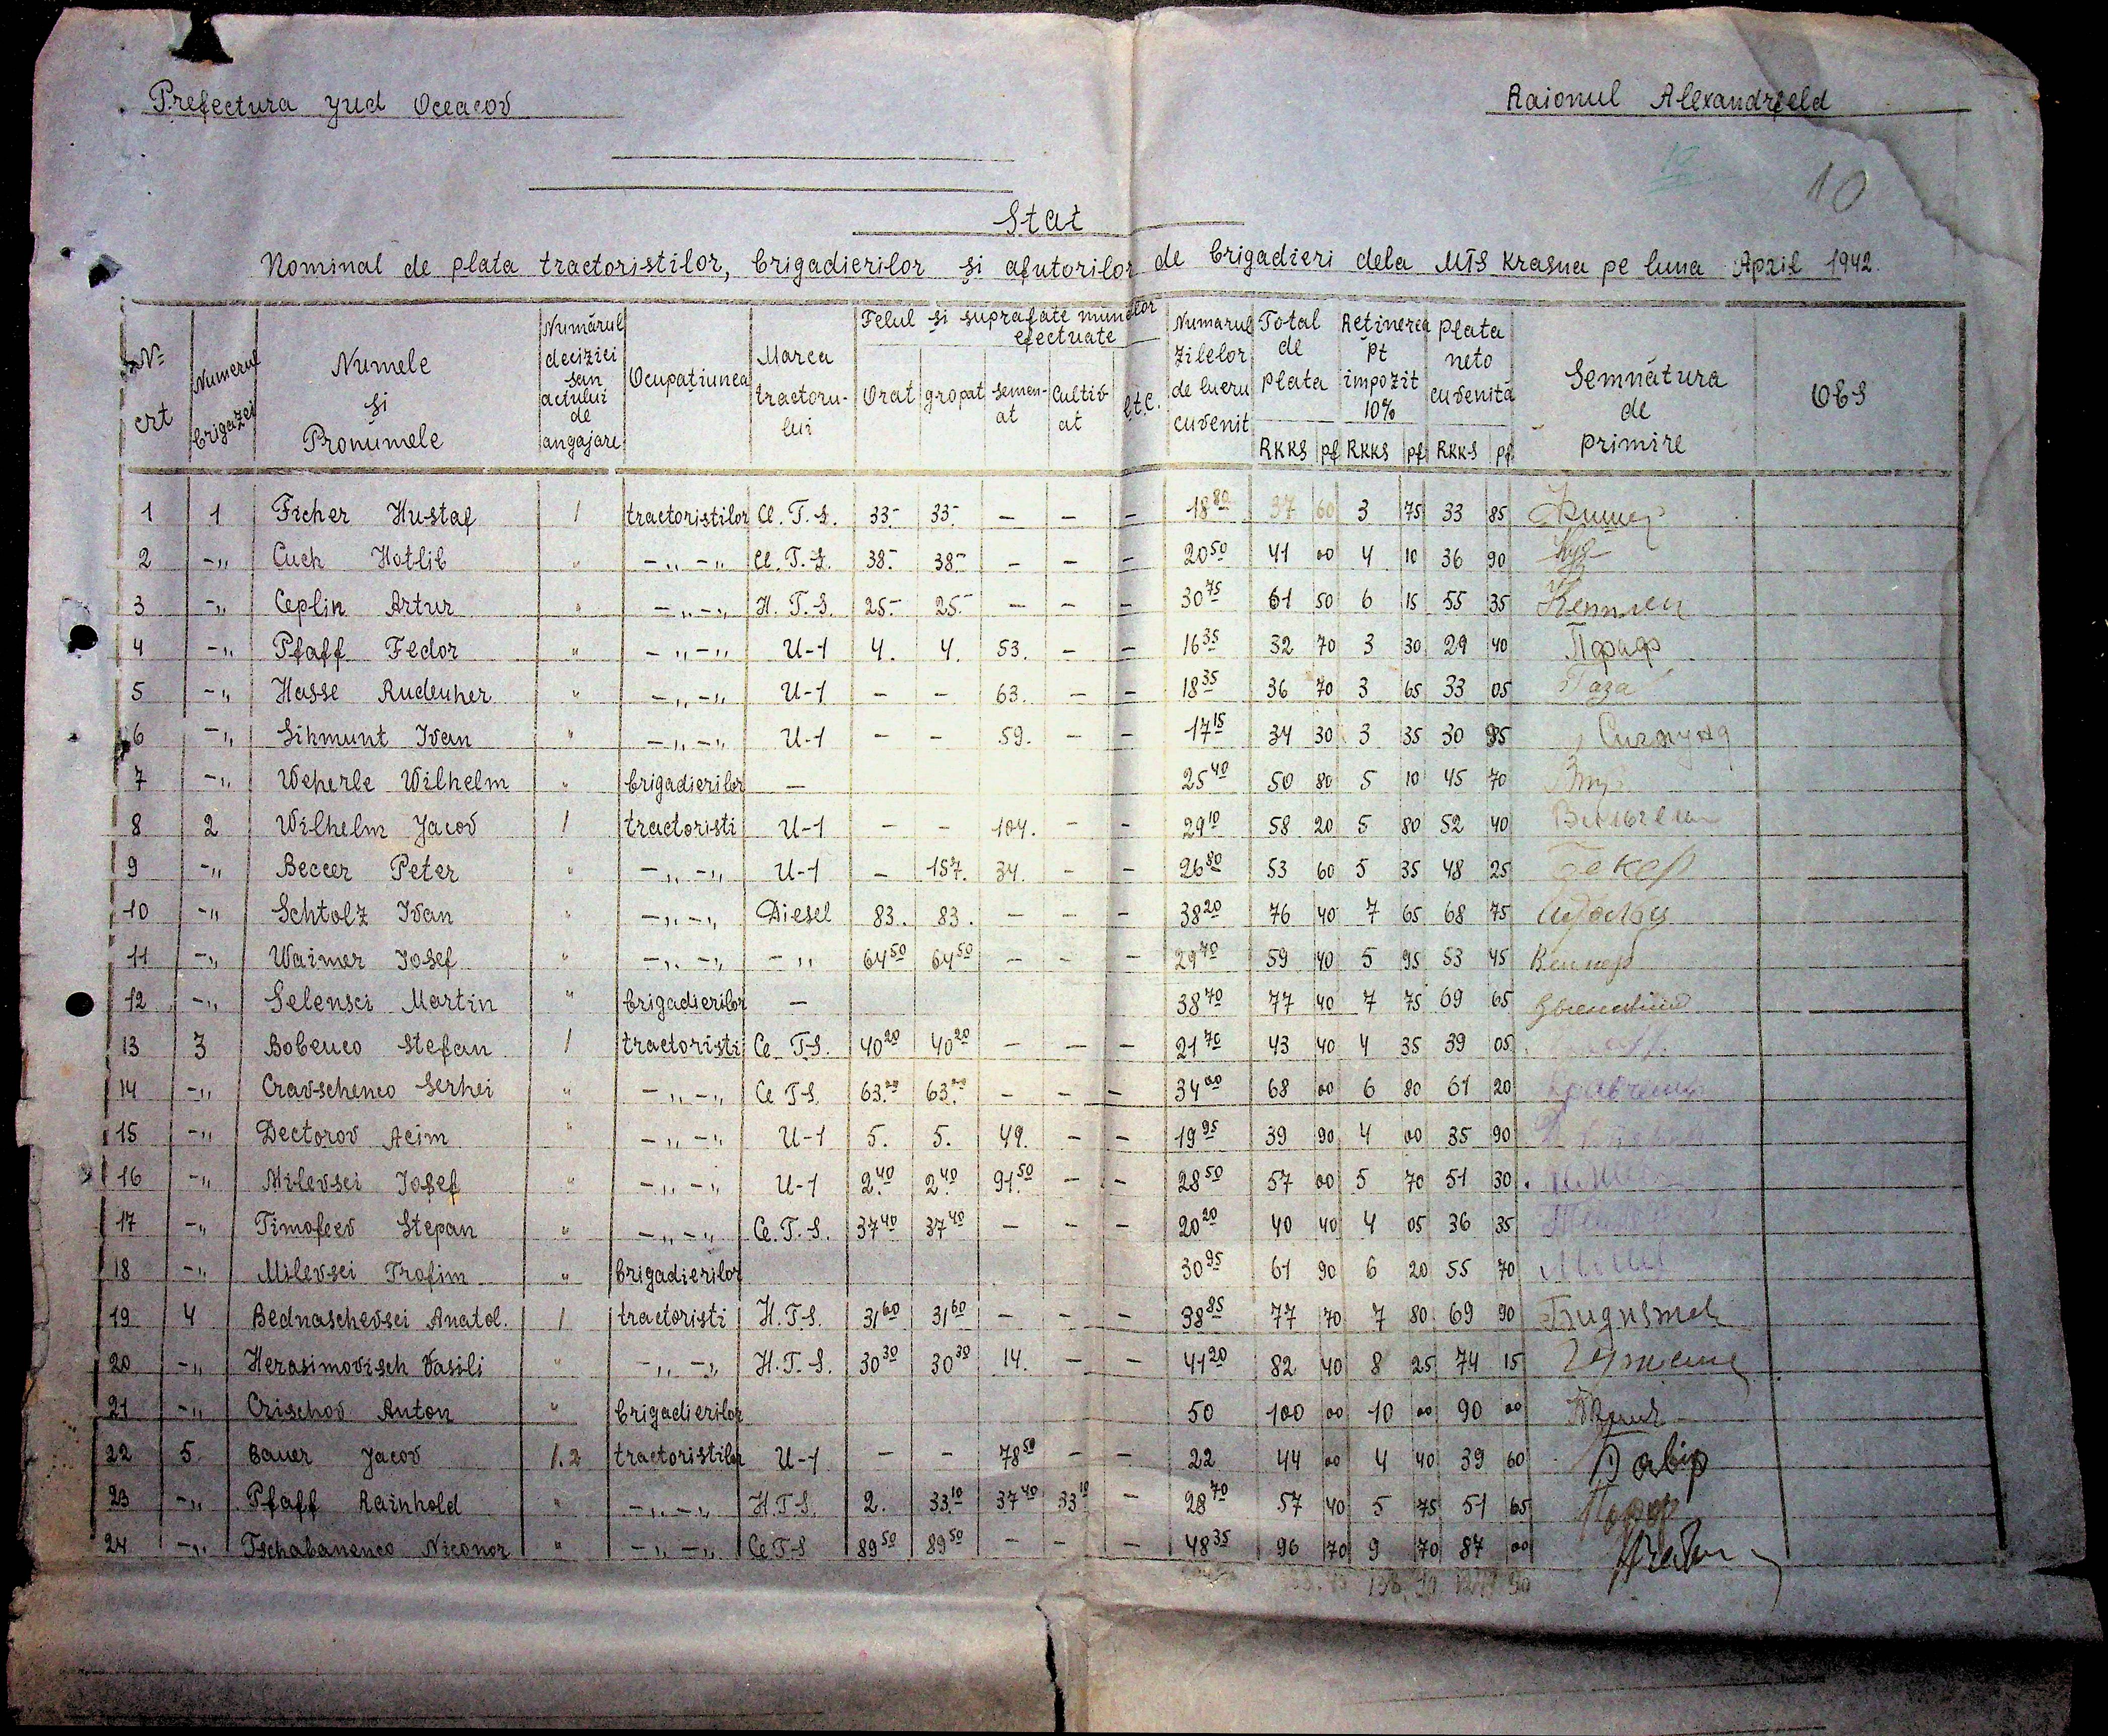 Prefectura jud Oceacov
Raionul Alexandrfeld
12
10
Stat
Nominal de plata tractoristilor, brigadierilor și afutorilor de brigadieri dela MTS Krasna pe luna April 1942.
№ crt
Numerul brigazei
Numele și Pronumele
Numărul deciziei sau actului de angajare
Ocupațiunea
Marca tractorului
Felul și suprafate muncilor efectuate
Orat
gropat
semenat
Cultivat
etc.
Numarul zilelor de lucru cuvenit
Total de plata
Retinerea pt impozit 10%
plata neto cuvenită
RKKS pf RKKS pf RKKS pf
Semnătura de primire
OBS
1 1 Ficher Hustaf 1 tractoristilor Ce. T.S. 33- 33- - - - 18 80 37 60 3 75 33 85
2 -,, Cuch Hotlib " -,,-,, Ce. T.S. 38.- 38.- - - - 20 50 41 00 4 10 36 90
3 -,, Ceplin Artur " -,,-,, H. T.S. 25.- 25.- - - - 30 75 61 50 6 15 55 35
4 -,, Pfaff Fedor " -,,-,, U-1 4. 4. 53. - - 16 35 32 70 3 30 29 40 Пфафф
5 -,, Hasse Rudeuher " -,,-,, U-1 - - 63. - - 18 35 36 70 3 65 33 05 Газа
6 -,, Sihmunt Ivan " -,,-,, U-1 - - 59. - - 17 15 34 30 3 35 30 95 Сигмунд
7 -,, Weherle Wilhelm " brigadierilor - 25 40 50 80 5 10 45 70
8 2 Wilhelm Jacov 1 tractoristi U-1 - - 104. - - 29 10 58 20 5 80 52 40 Вильгельм
9 -,, Beccer Peter " -,,-,, U-1 - 157. 34. - - 26 80 53 60 5 35 48 25 Бекер
10 -,, Schtolz Ivan " -,,-,, Diesel 83. 83. - - - 38 20 76 40 7 65 68 75 Штольц
11 -,, Waimer Iosef " -,,-,, -,, 64 50 64 50 - - - 29 70 59 40 5 95 53 45
12 -,, Selensci Martin " brigadierilor - 38 70 77 40 7 75 69 65
13 3 Bobenco Stefan 1 tractoristi Ce T-S. 40 20 40 20 - - - 21 70 43 40 4 35 39 05
14 -,, Cravschenco Serhei " -,,-,, Ce T-S. 63.00 63.00 - - - 34 00 68 00 6 80 61 20
15 -,, Dectorov Acim " -,,-,, U-1 5. 5. 49. - - 19 95 39 90 4 00 35 90
16 -,, Milevsci Iosef " -,,-,, U-1 2.40 2.40 91.50 - - 28 50 57 00 5 70 51 30
17 -,, Timofeev Stepan " -,,-,, Ce. T.S. 37 40 37 40 - - - 20 20 40 40 4 05 36 35
18 -,, Milevsci Trofim " brigadierilor 30 95 61 90 6 20 55 70
19 4 Bednaschevsci Anatol. 1 tractoristi H. T-S. 31 60 31 60 - - - 38 85 77 70 7 80 69 90
20 -,, Herasimovisch Vasili " -,,-,, H. T-S. 30 30 30 30 14. - - 41 20 82 40 8 25 74 15
21 -,, Crischov Anton " brigadierilor 50 100 00 10 00 90 00
22 5 Bauer Jacov 1.2 tractoristilor U-1 - - 78 50 - - 22 44 00 4 40 39 60
23 -,, Pfaff Rainhold " -,,-,, H. T-S. 2. 33 10 37 40 33 10 - 28 70 57 40 5 75 51 65
24 -,, Tschabanenco Niconor " -,,-,, Ce T-S 89 50 89 50 - - - 48 35 96 70 9 70 87 00